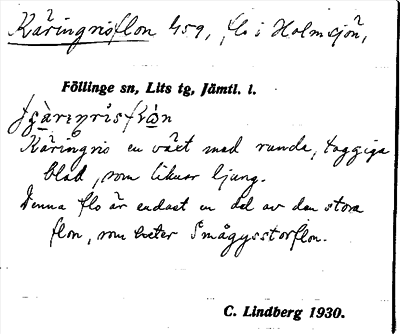 Käringrisflon 459, flo i Holmsjön,
Föllinge sn, Lits tg, Jämtl. l.
Käringris en växt med runda, taggiga
blad, som liknar ljung.
Denna flo är endast en del av den stora
flon, som heter Smågysstorflon.
C. Lindberg 1930.